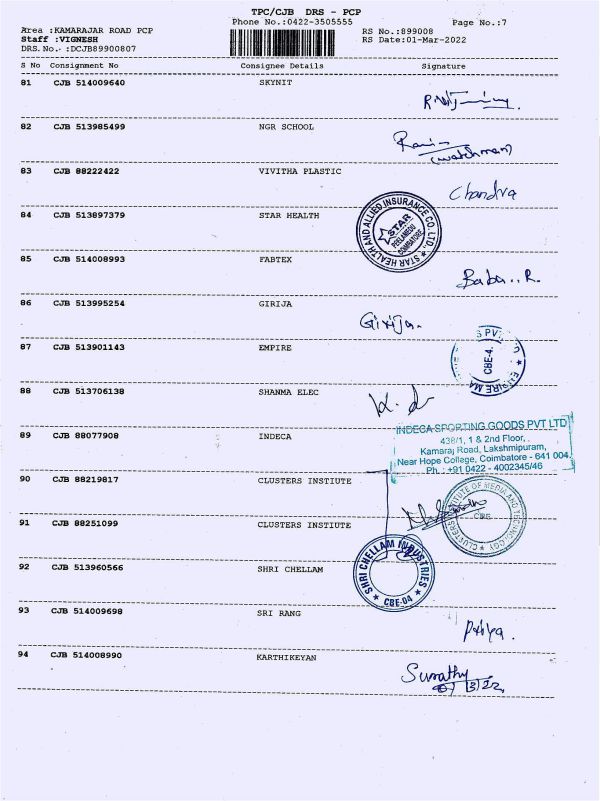 TPC/CJB DRS - PCP
Phone No.:0422-3505555
Page No.:7
Area :KAMARAJAR ROAD PCP
RS No.:899008
Staff :VIGNESH
RS Date:01-Mar-2022
DRS.No.:DCJB89900807
S No Consignment No Consignee Details Signature
81 CJB 514009640 SKYNIT
82 CJB 513985499 NGR SCHOOL
Ravi
(watchman)
83 CJB 88222422 VIVITHA PLASTIC
Chandra
84 CJB 513897379 STAR HEALTH
STAR HEALTH AND ALLIED INSURANCE CO. LTD.
STAR
PEELAMEDU
COIMBATORE
85 CJB 514008993 FABTEX
Babu..R.
86 CJB 513995254 GIRIJA
Girija.
87 CJB 513901143 EMPIRE
S PV
CBE-4.
EMPIRE MA
88 CJB 513706138 SHANMA ELEC
89 CJB 88077908 INDECA
INDECA SPORTING GOODS PVT LTD
438/1, 1 & 2nd Floor,
Kamaraj Road, Lakshmipuram,
Near Hope College, Coimbatore - 641 004.
Ph : +91 0422 - 4002345/46
90 CJB 88219817 CLUSTERS INSTIUTE
CLUSTERS INSTITUTE OF MEDIA AND TECHNOLOGY
CBE
91 CJB 88251099 CLUSTERS INSTIUTE
92 CJB 513960566 SHRI CHELLAM
SHRI CHELLAM INDUSTRIES
CBE-04
93 CJB 514009698 SRI RANG
Priya.
94 CJB 514008990 KARTHIKEYAN
Sumathy